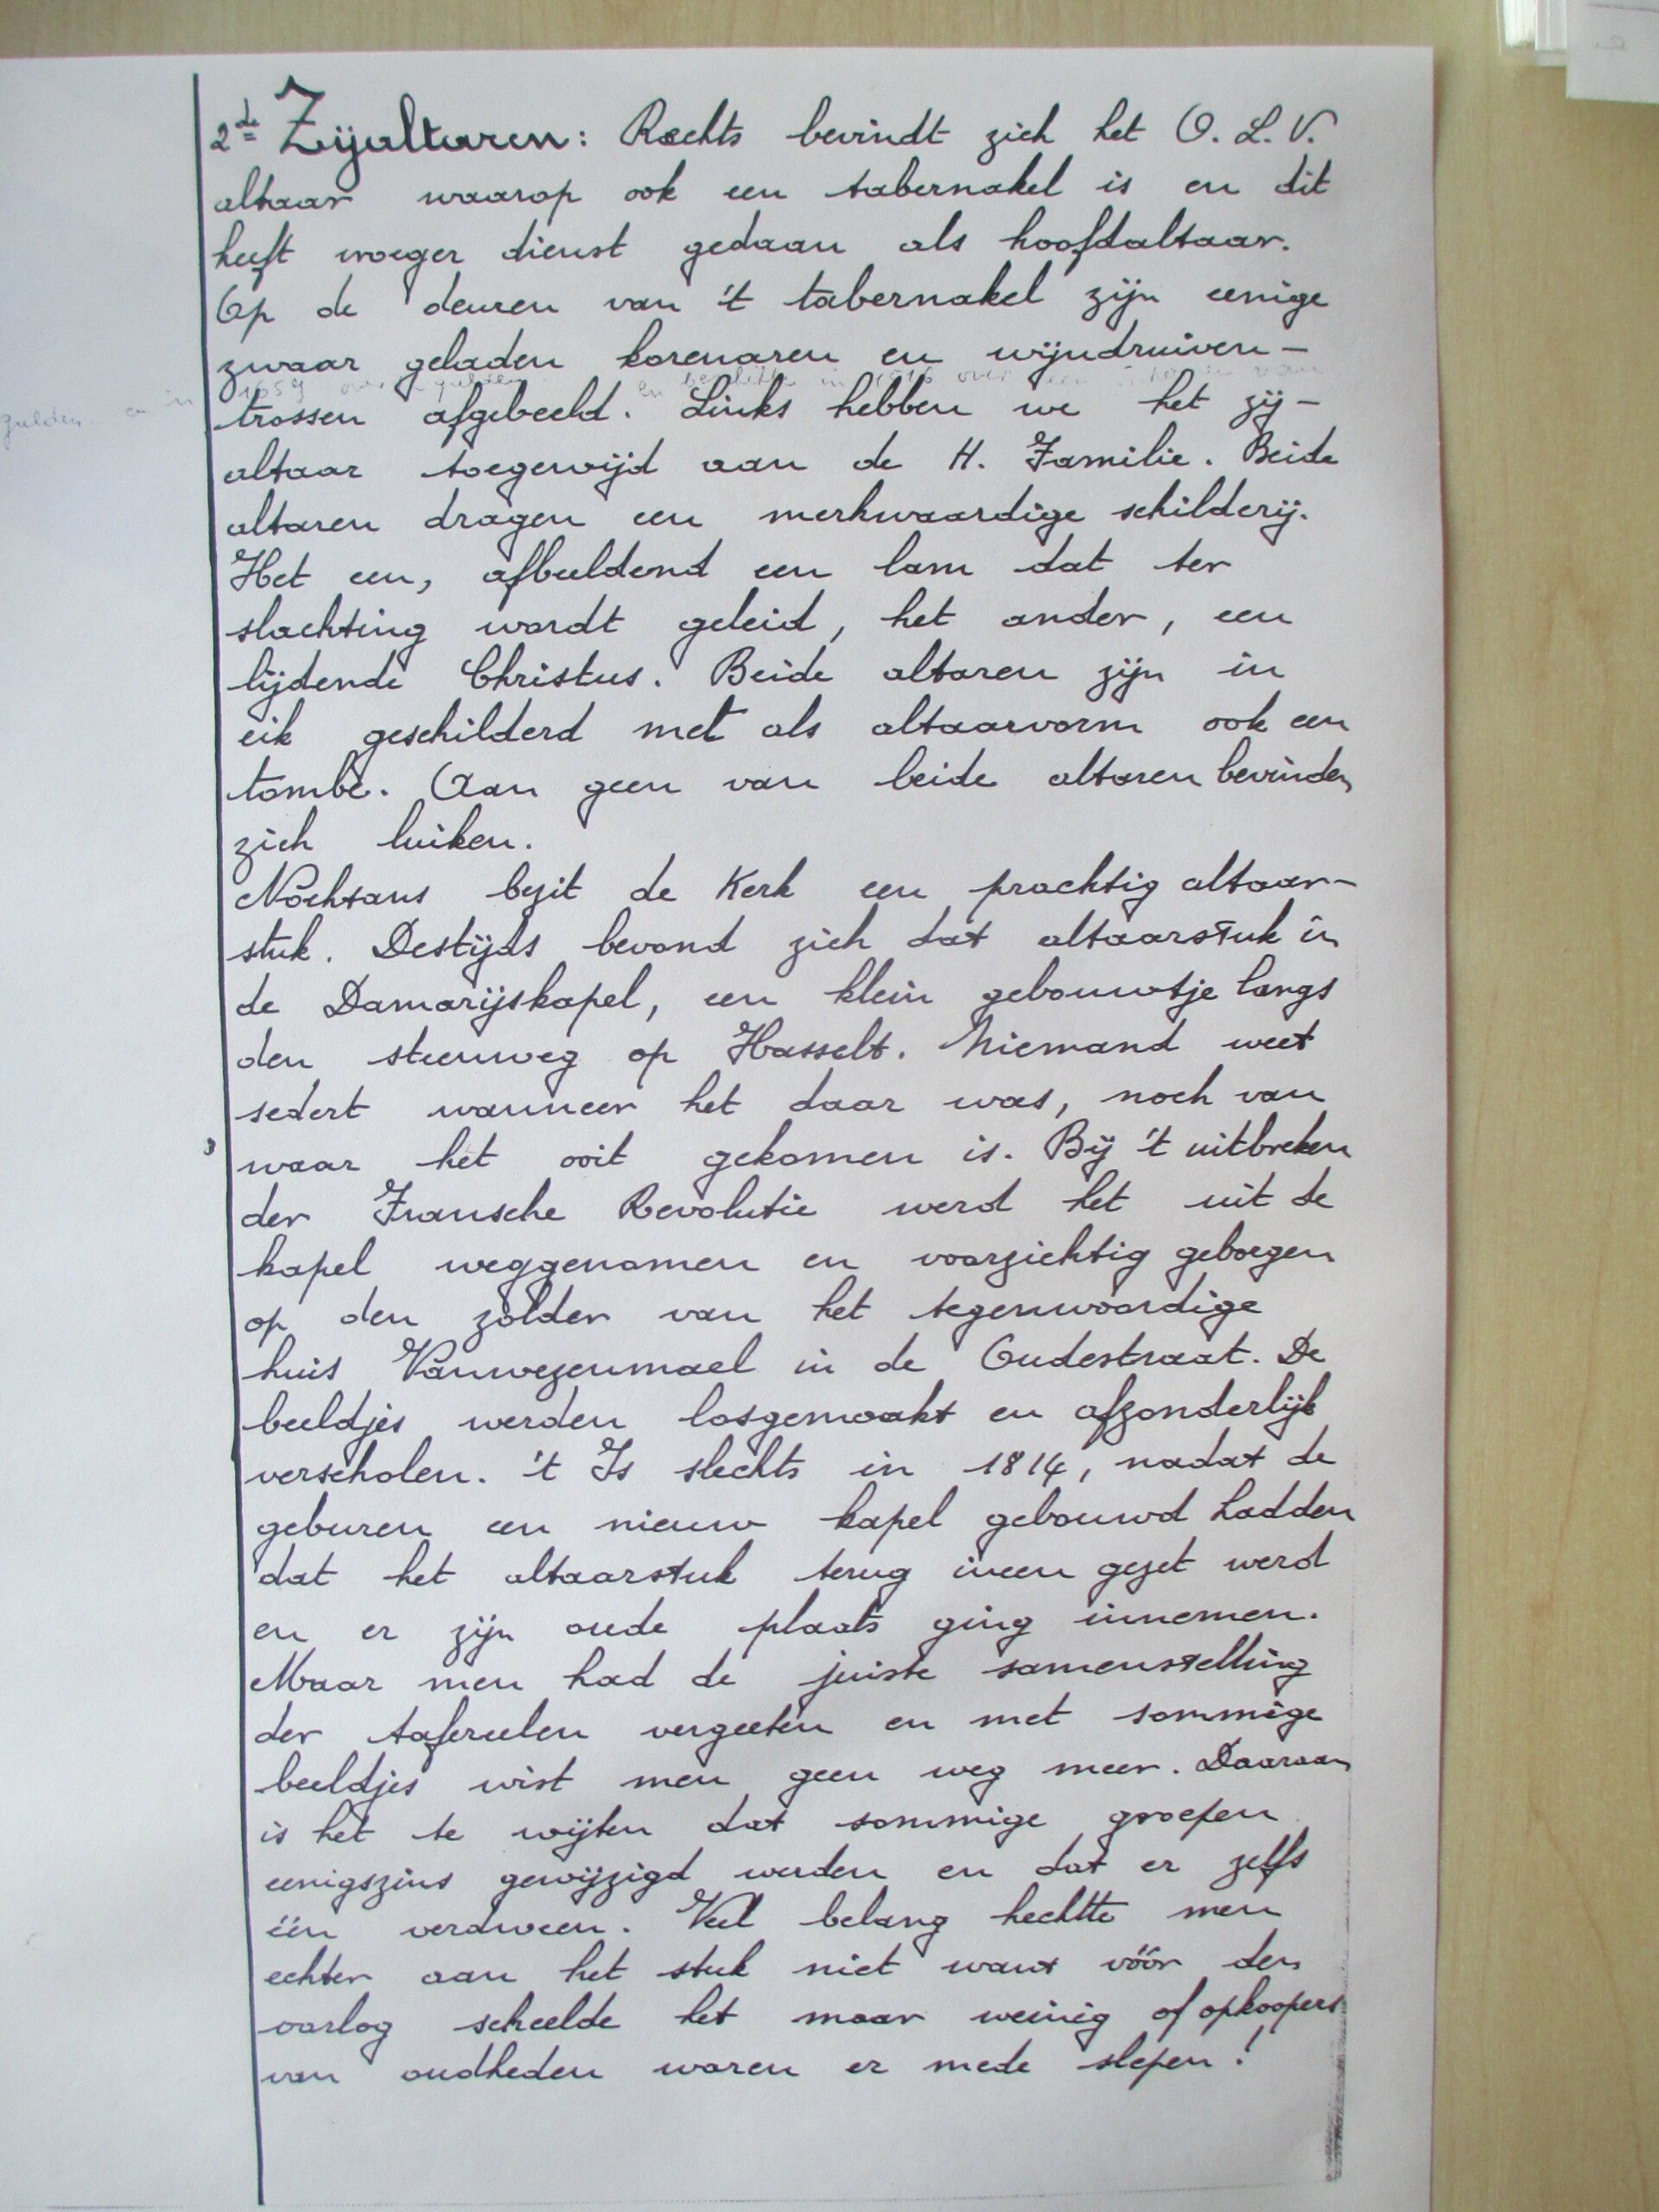 2de Zijaltaren: Rechts bevindt zich het O. L. V.
altaar waarop ook een tabernakel is en dit
heeft vroeger dienst gedaan als hoofdaltaar.
Op de deuren van 't tabernakel zijn eenige
zwaar geladen korenaren en wijndruiven-
gulden. en in 1659
trossen afgebeeld. Links hebben we het zij-
altaar toegewijd aan de H. Familie. Beide
altaren dragen een merkwaardige schilderij.
Het een, afbeeldend een lam dat ter
slachting wordt geleid, het ander, een
lijdende Christus. Beide altaren zijn in
eik geschilderd met als altaarvorm ook een
tombe. Aan geen van beide altaren bevinden
zich luiken.
Nochtans bezit de Kerk een prachtig altaar-
stuk. Destijds bevond zich dat altaarstuk in
de Damarijskapel, een klein gebouwtje langs
den steenweg op Hasselt. Niemand weet
sedert wanneer het daar was, noch van
waar het ooit gekomen is. Bij 't uitbreken
der Fransche Revolutie werd het uit de
kapel weggenomen en voorzichtig geborgen
op den zolder van het tegenwoordige
huis Vanwezenmael in de Oudestraat. De
beeldjes werden losgemaakt en afzonderlijk
verscholen. 't Is slechts in 1814, nadat de
geburen een nieuw kapel gebouwd hadden
dat het altaarstuk terug ineen gezet werd
en er zijn oude plaats ging innemen.
Maar men had de juiste samenstelling
der tafereelen vergeeten en met sommige
beeldjes wist men geen weg meer. Daaraan
is het te wijten dat sommige groepen
eenigszins gewijzigd werden en dat er zelfs
één verdween. Veel belang hechtte men
echter aan het stuk niet want vóór den
oorlog scheelde het maar weinig of opkoopers
van oudheden waren er mede slepen!